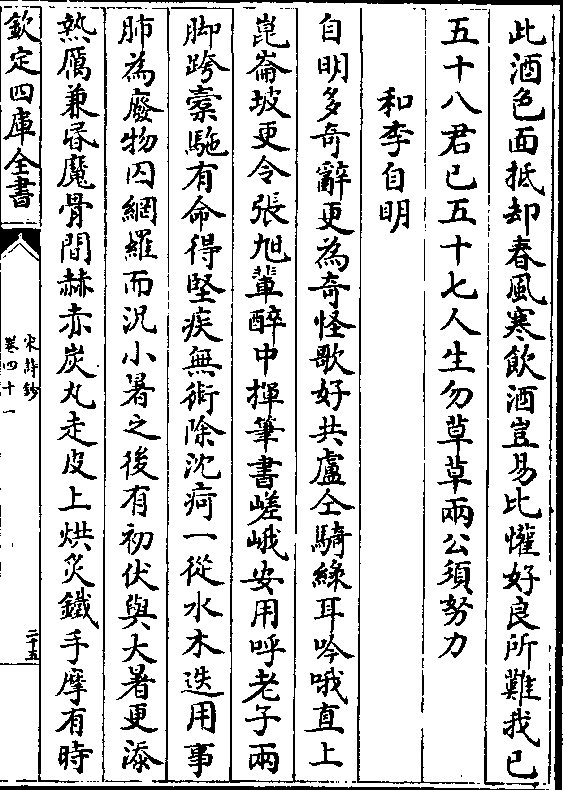 此酒色面抵却春風寒飲酒豈易比懽好良所難我已
五十八君已五十七人生勿草草兩公須努力
和李自明
自明多奇辭更為奇怪歌好共盧仝騎綠耳吟哦直上
崑崙坡更令張旭輩醉中揮筆書嵯峨安用呼老子兩
脚跨橐駞有命得堅疾無術除沈疴一從水木迭用事
肺為廢物囚網羅而況小暑之後有初伏與大暑更添
熱厲兼昬魔骨間赫赤炭丸走皮上烘炙鐵手摩有時
欽定四庫全書
宋詩鈔
卷四十一
二十五